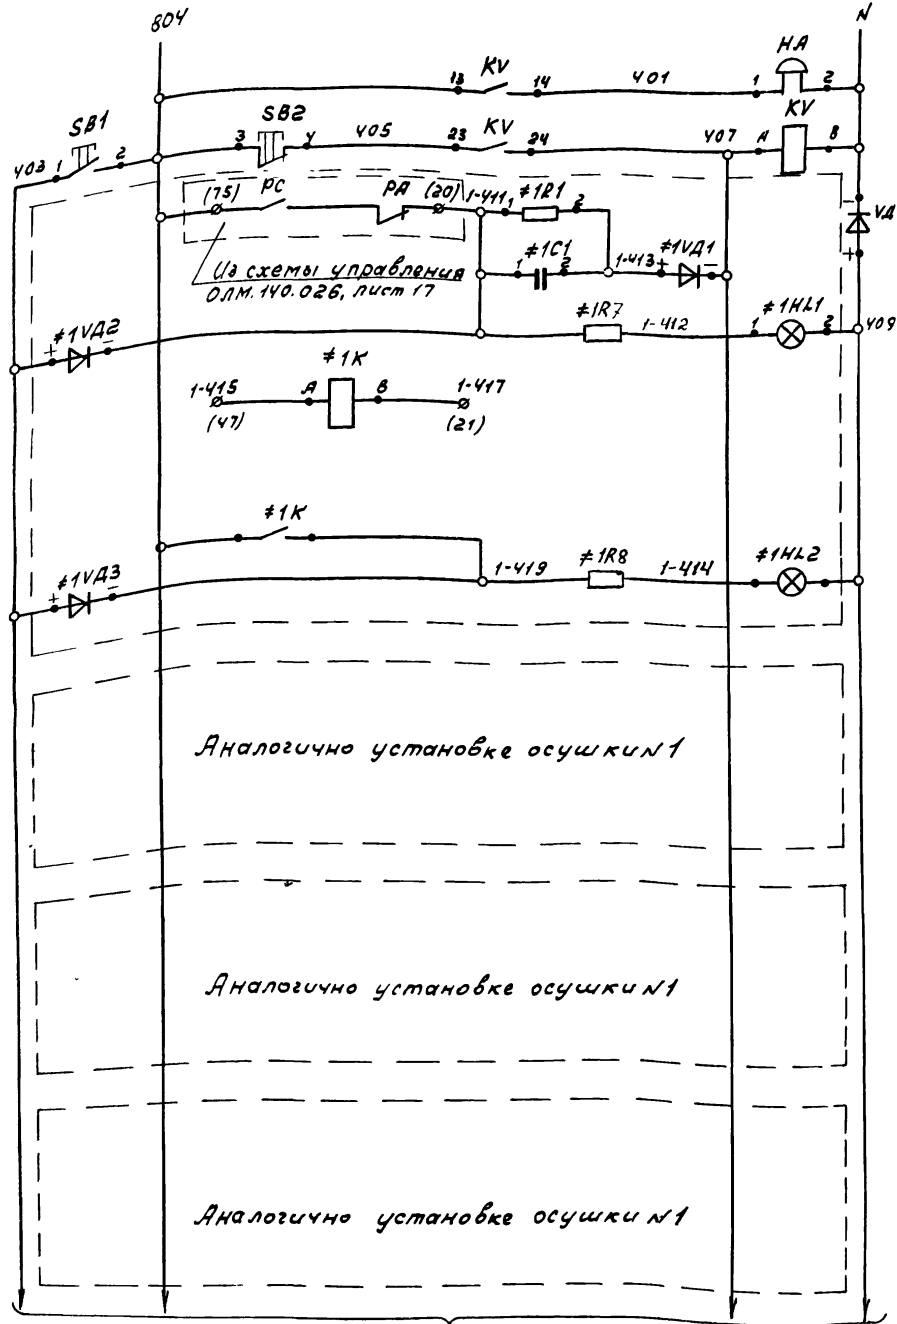 804
N
HA
13 KV 14 401 1 2
SB1
SB2
KV
KV
403 1 2 3 4 405 23 24 407 A B
(75) PC РД (20) 1-411 1 ≠1R1 2
VД
Из схемы управления
ОЛМ.140.026, лист 17
≠1C1
1 2 1-413 + ≠1VД1 −
− +
≠1VД2
+ −
≠1R7 1-412 1 ≠1HL1 2 409
≠1K
1-415 A B 1-417
(47) (21)
≠1K
≠1VД3
+ −
1-419 ≠1R8 1-414 ≠1HL2
Аналогично установке осушки N1
Аналогично установке осушки N1
Аналогично установке осушки N1